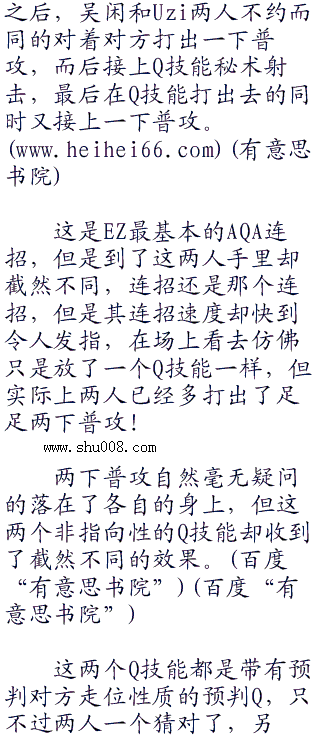 之后，吴闲和Uzi两人不约而
同的对着对方打出一下普
攻，而后接上Q技能秘术射
击，最后在Q技能打出去的同
时又接上一下普攻。
(www.heihei66.com)(有意思
书院)
这是EZ最基本的AQA连
招，但是到了这两人手里却
截然不同，连招还是那个连
招，但是其连招速度却快到
令人发指，在场上看去仿佛
只是放了一个Q技能一样，但
实际上两人已经多打出了足
足两下普攻！
www.shu008.com
两下普攻自然毫无疑问
的落在了各自的身上，但这
两个非指向性的Q技能却收到
了截然不同的效果。(百度
“有意思书院”)(百度“有
意思书院”)
这两个Q技能都是带有预
判对方走位性质的预判Q，只
不过两人一个猜对了，另